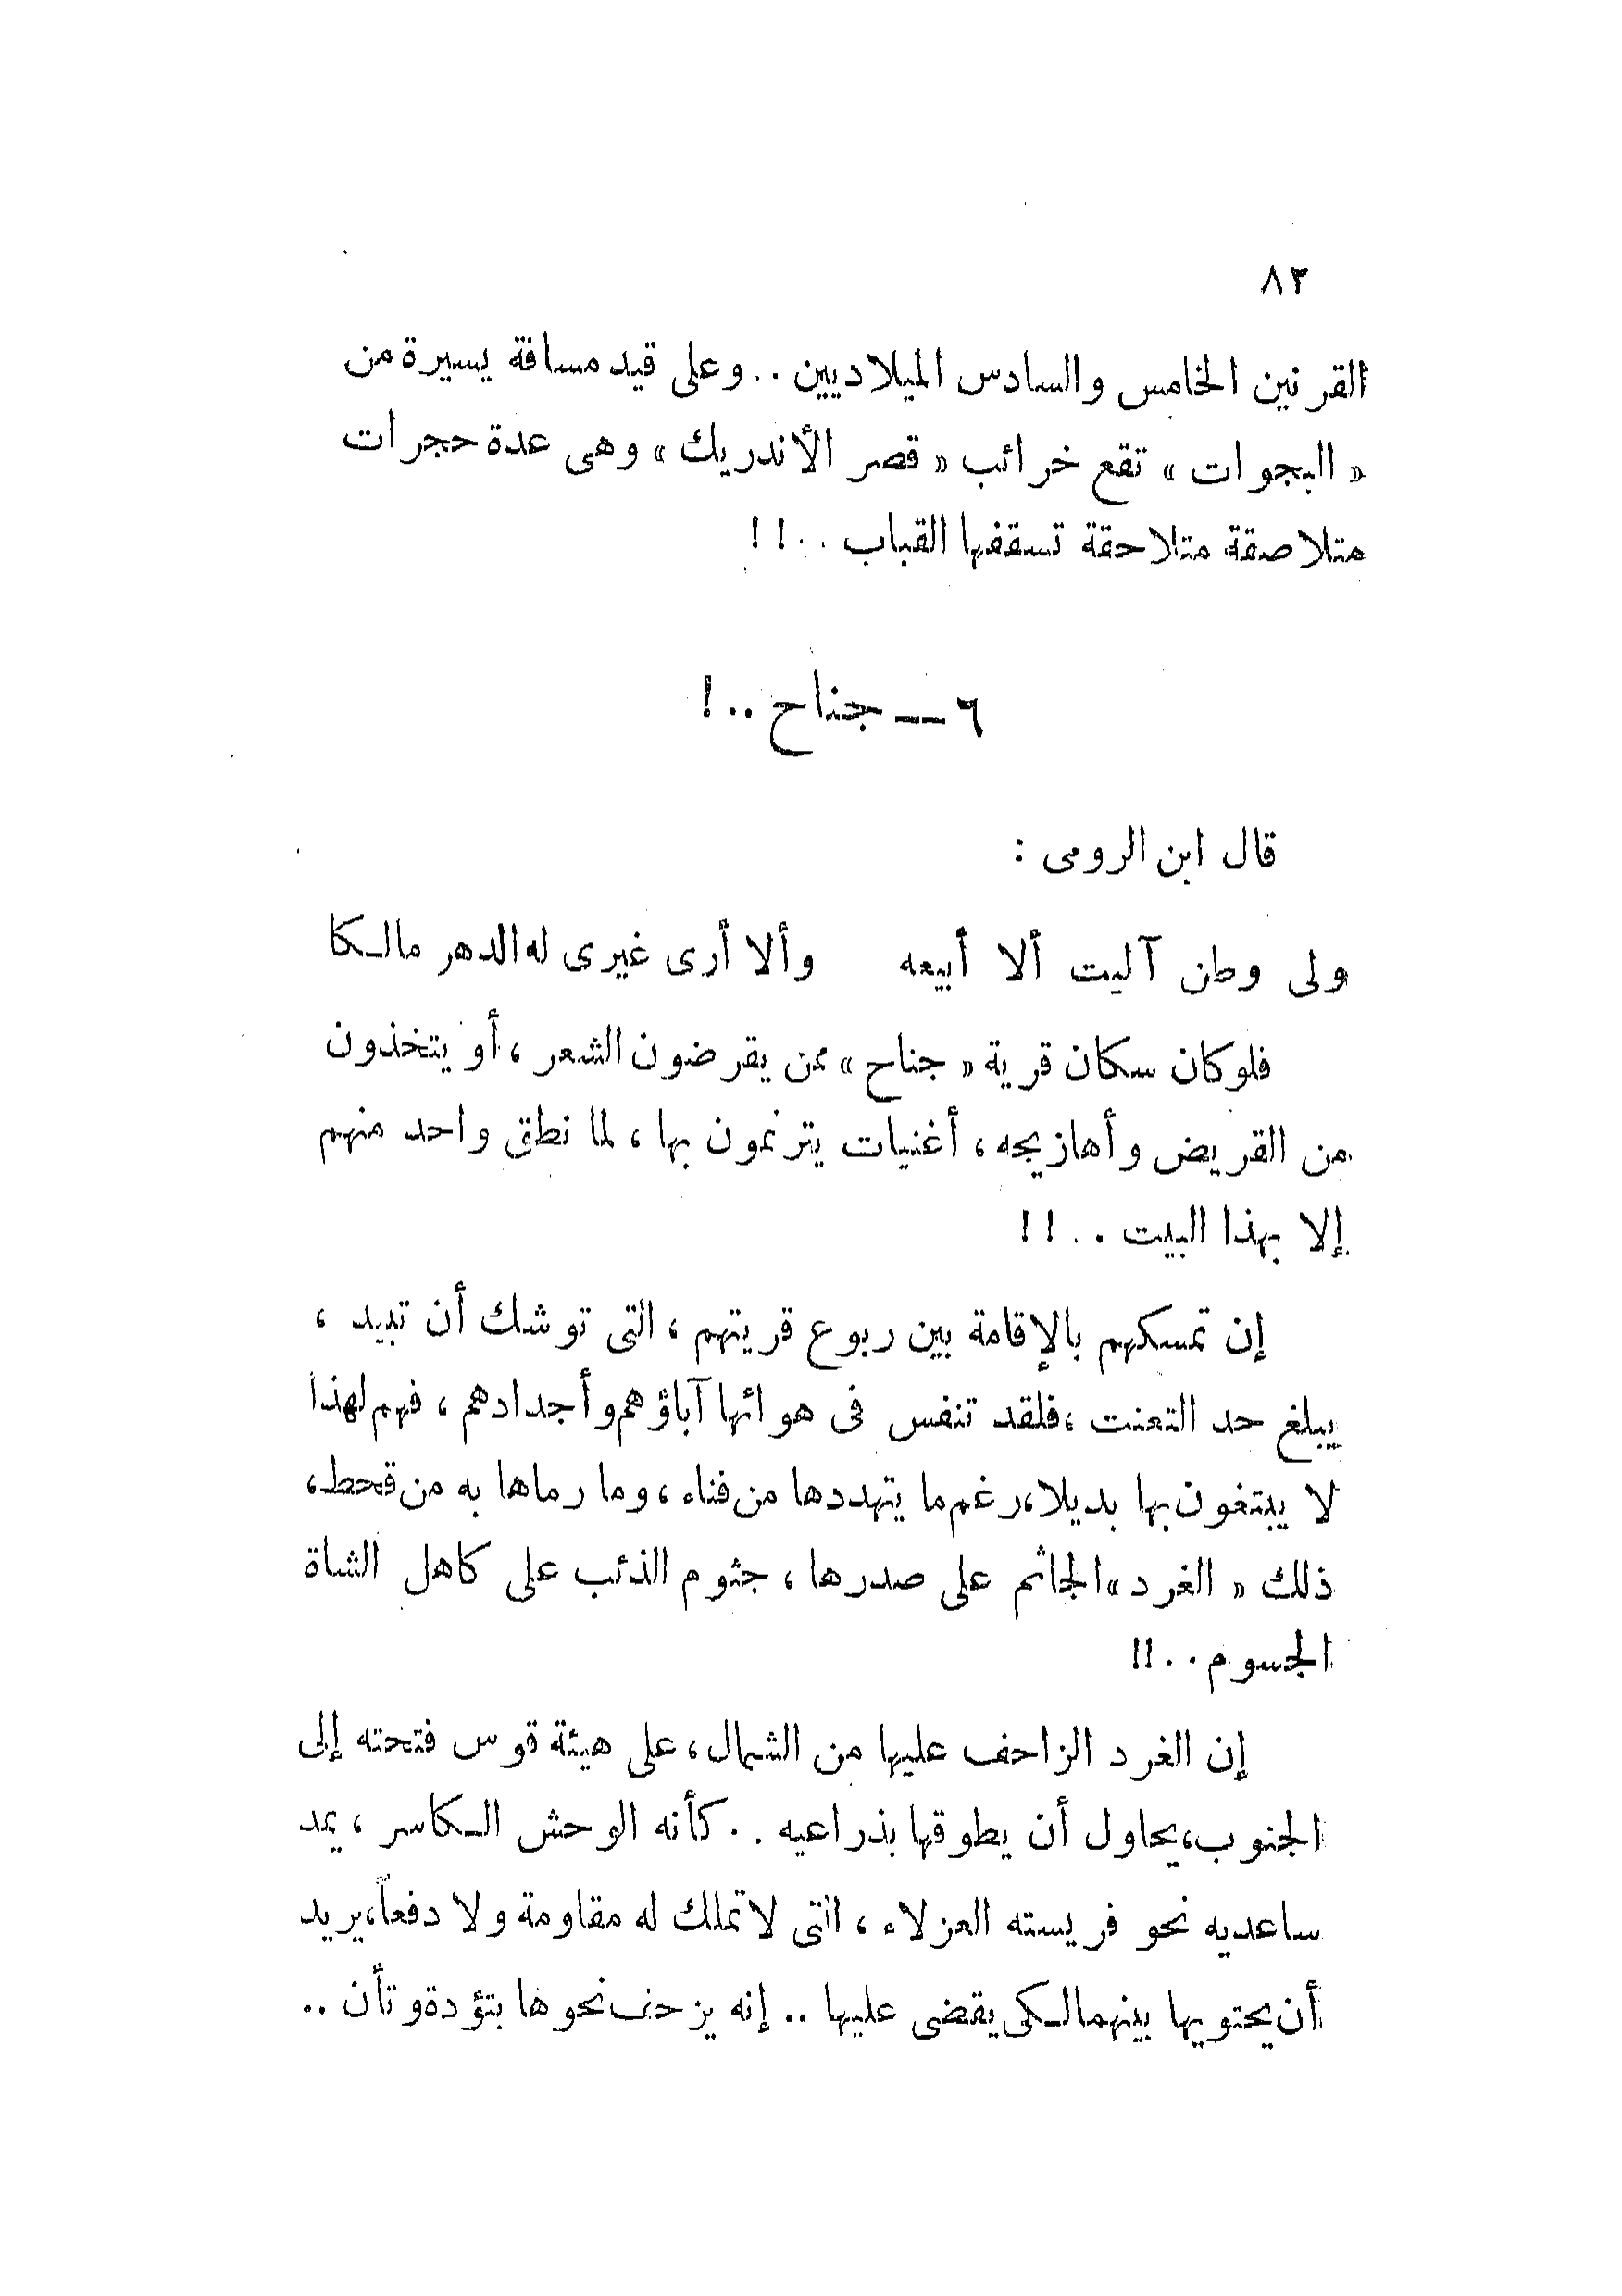 ٨٣
القرنين الخامس والسادس الميلاديين .. وعلى قيد مسافة يسيرة من
« البجوات » تقع خرائب « قصر الأندريك » وهى عدة حجرات
متلاصقة متلاحقة تسقفها القباب ..!!
٦ — جناح ..!
قال ابن الرومى :
ولى وطن آليت ألا أبيعه وألا أرى غيرى له الدهر مالكا
فلو كان سكان قرية « جناح » ممن يقرضون الشعر ، أو يتخذون
من القريض وأهازيجه ، أغنيات يترنمون بها ، لما نطق واحد منهم
إلا بهذا البيت ..!!
إن تمسكهم بالإقامة بين ربوع قريتهم ، التى توشك أن تبيد ،
يبلغ حد التعنت ، فلقد تنفس فى هوائها آباؤهم وأجدادهم ، فهم لهذا
لا يبتغون بها بديلا ، رغم ما يتهددها من فناء ، وما رماها به من قحط ،
ذلك « الغرد » الجاثم على صدرها ، جثوم الذئب على كاهل الشاة
الجسوم ..!!
إن الغرد الزاحف عليها من الشمال ، على هيئة قوس فتحته إلى
الجنوب ، يحاول أن يطوقها بذراعيه .. كأنه الوحش الكاسر ، يمد
ساعديه نحو فريسته العزلاء ، التى لا تملك له مقاومة ولا دفعاً ، يريد
أن يحتويها بينهما لكى يقضى عليها .. إنه يزحف نحوها بتؤدة وتأن ..